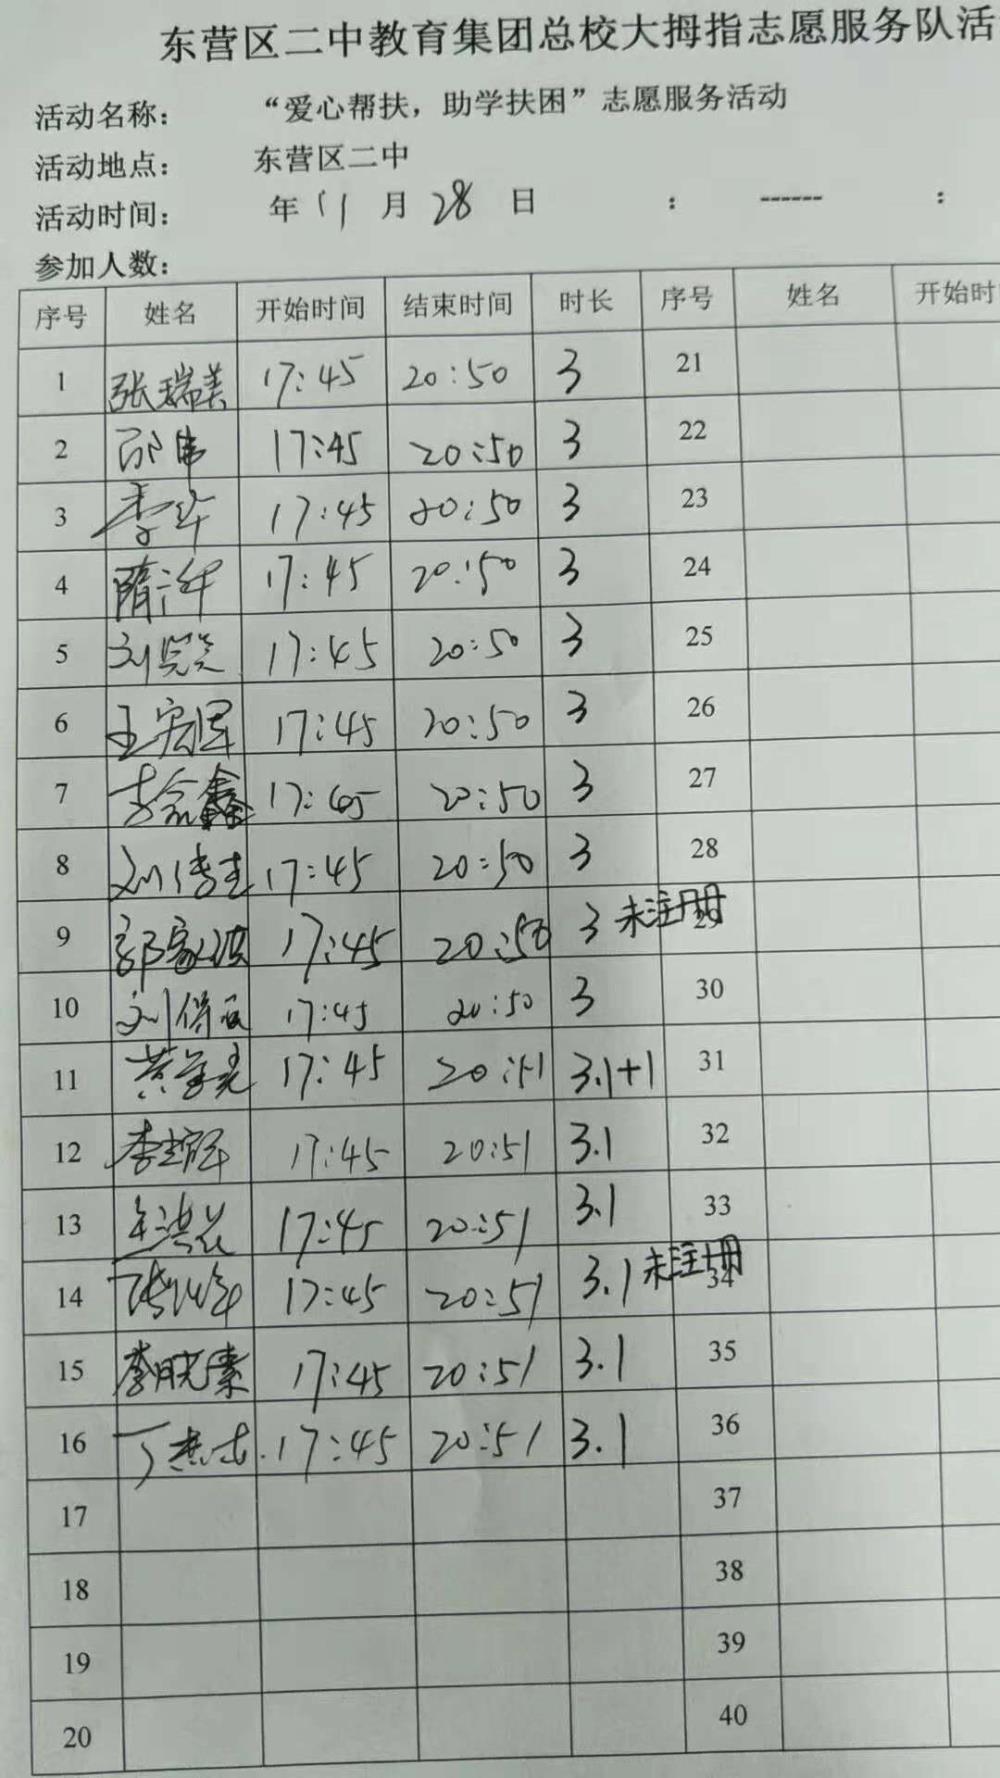 东营区二中教育集团总校大拇指志愿服务队活
活动名称： “爱心帮扶，助学扶困”志愿服务活动
活动地点： 东营区二中
活动时间： 年 11 月 28 日 ： ------ ：
参加人数：
序号 姓名 开始时间 结束时间 时长 序号 姓名 开始时
1 张瑞美 17:45 20:50 3 21
2 邵伟 17:45 20:50 3 22
3 李华 17:45 20:50 3 23
4 隋 17:45 20:50 3 24
5 刘 17:45 20:50 3 25
6 王宏军 17:45 20:50 3 26
7 李鑫 17:45 20:50 3 27
8 刘传吉 17:45 20:50 3 28
9 郭家洪 17:45 20:50 3 未注册 29
10 刘 17:45 20:50 3 30
11 黄 17:45 20:51 3.1+1 31
12 李 17:45 20:51 3.1 32
13 王洪花 17:45 20:51 3.1 33
14 17:45 20:51 3.1 未注册 34
15 李晓素 17:45 20:51 3.1 35
16 丁 17:45 20:51 3.1 36
17 37
18 38
19 39
20 40